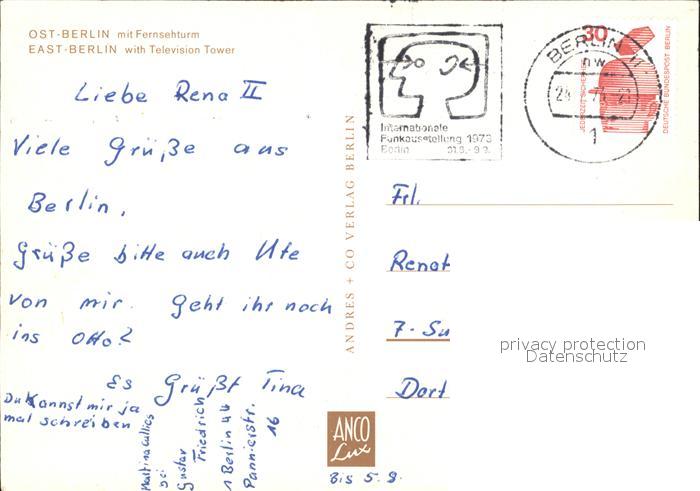 OST-BERLIN mit Fernsehturm
EAST-BERLIN with Television Tower
Liebe Rena II
Viele Grüße aus
Berlin.
Grüße bitte auch Ute
von mir. Geht ihr noch
ins Otto?
Es Grüßt Tina
Du Kannst mir ja
mal schreiben
bei
Gustav
Friedrich
1 Berlin 44
Pannierstr.
16
Bis 5.9.
ANDRES + CO VERLAG BERLIN
ANCO
Lux
Internationale
Funkausstellung 1973
Berlin 31.8.-9.9.
BERLIN 11
nw
1
30
JEDERZEIT SICHERHEIT
DEUTSCHE BUNDESPOST BERLIN
Frl.
Renat
7-Su
Dort
privacy protection
Datenschutz